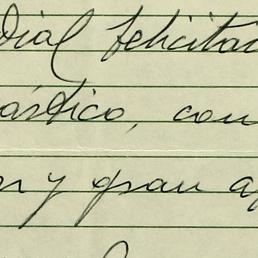 dial felicitac
ástico, con
n y gran a